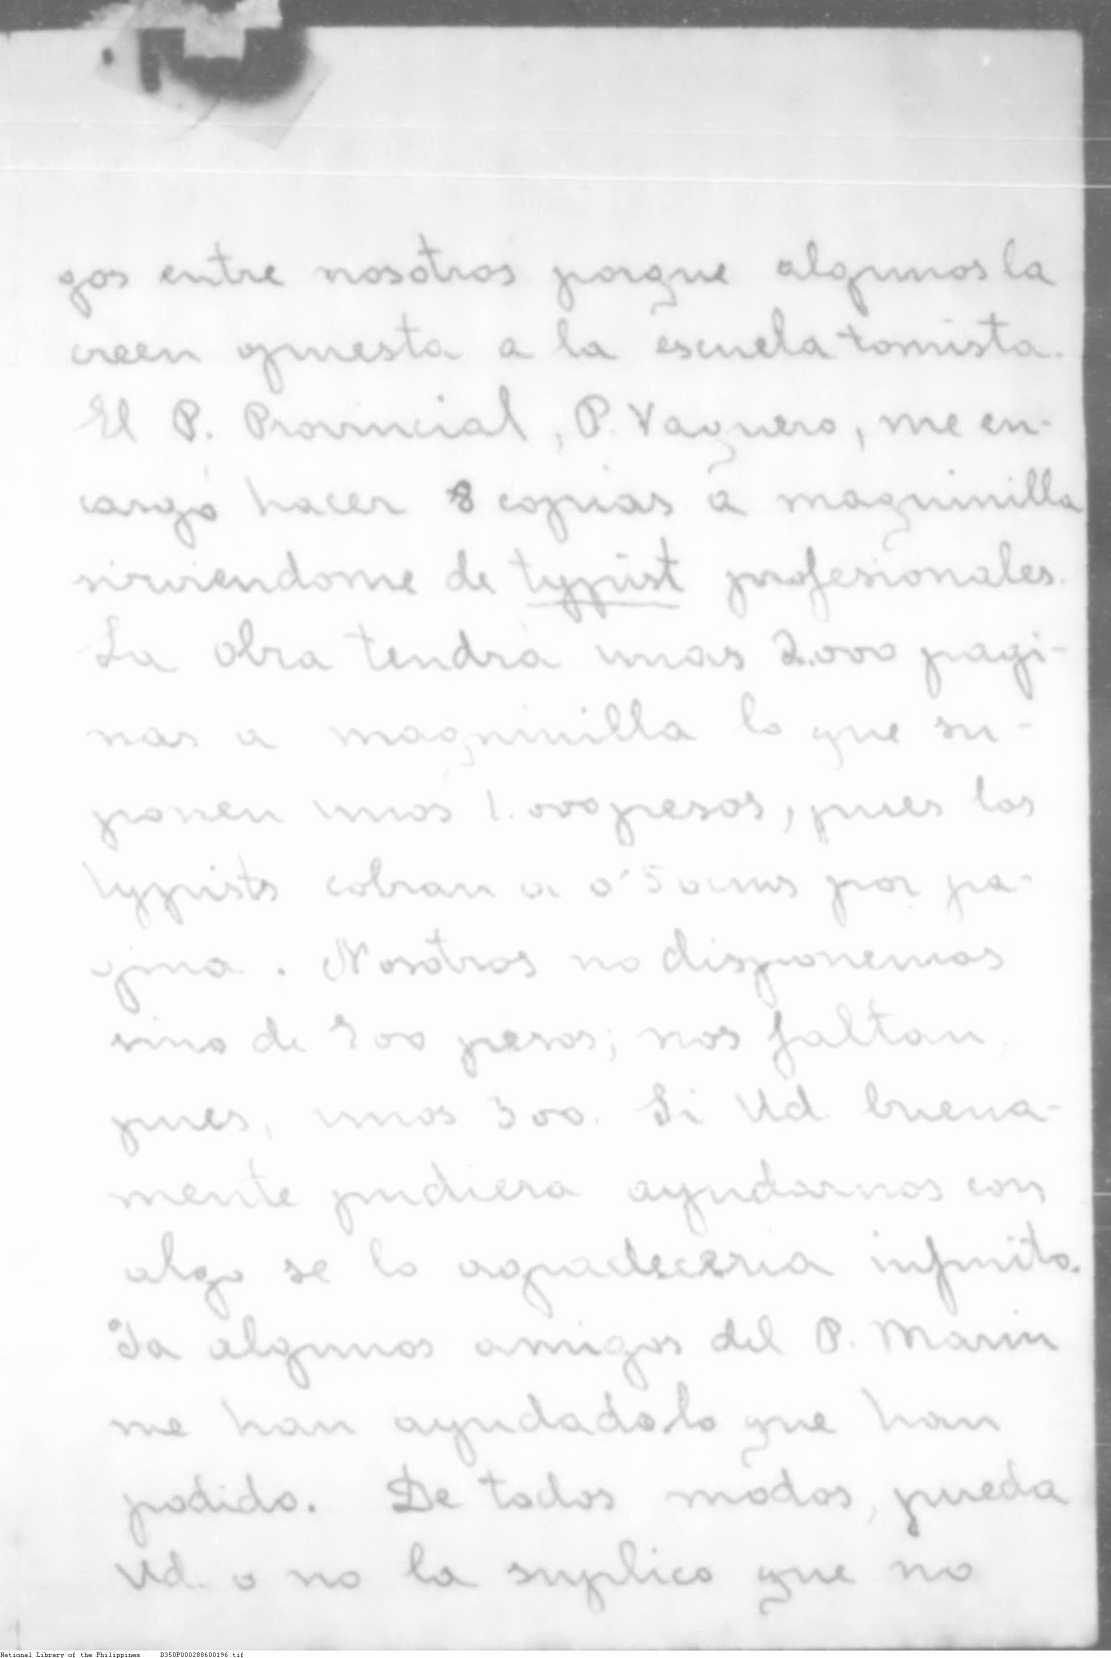 gos entre nosotros porque algunos la
creen opuesta a la escuela tomista.
El P. Provincial, P. Vaquero, me en-
cargó hacer 8 copias a maquinilla
sirviendome de typist profesionales.
La obra tendrá unas 2.000 pagi-
nas a maquinilla lo que su-
ponen unos 1.000 pesos, pues los
typists cobran a 0'50 por pa-
gina. Nosotros no disponemos
sino de 500 pesos; nos faltan
pues, unos 500. Si Ud. buena-
mente pudiera ayudarnos con
algo se lo agradeceria infinito.
Ya algunos amigos del P. Marin
me han ayudado lo que han
podido. De todos modos, pueda
Ud. o no la suplico que no
National Library of the Philippines D350P000288600196.tif